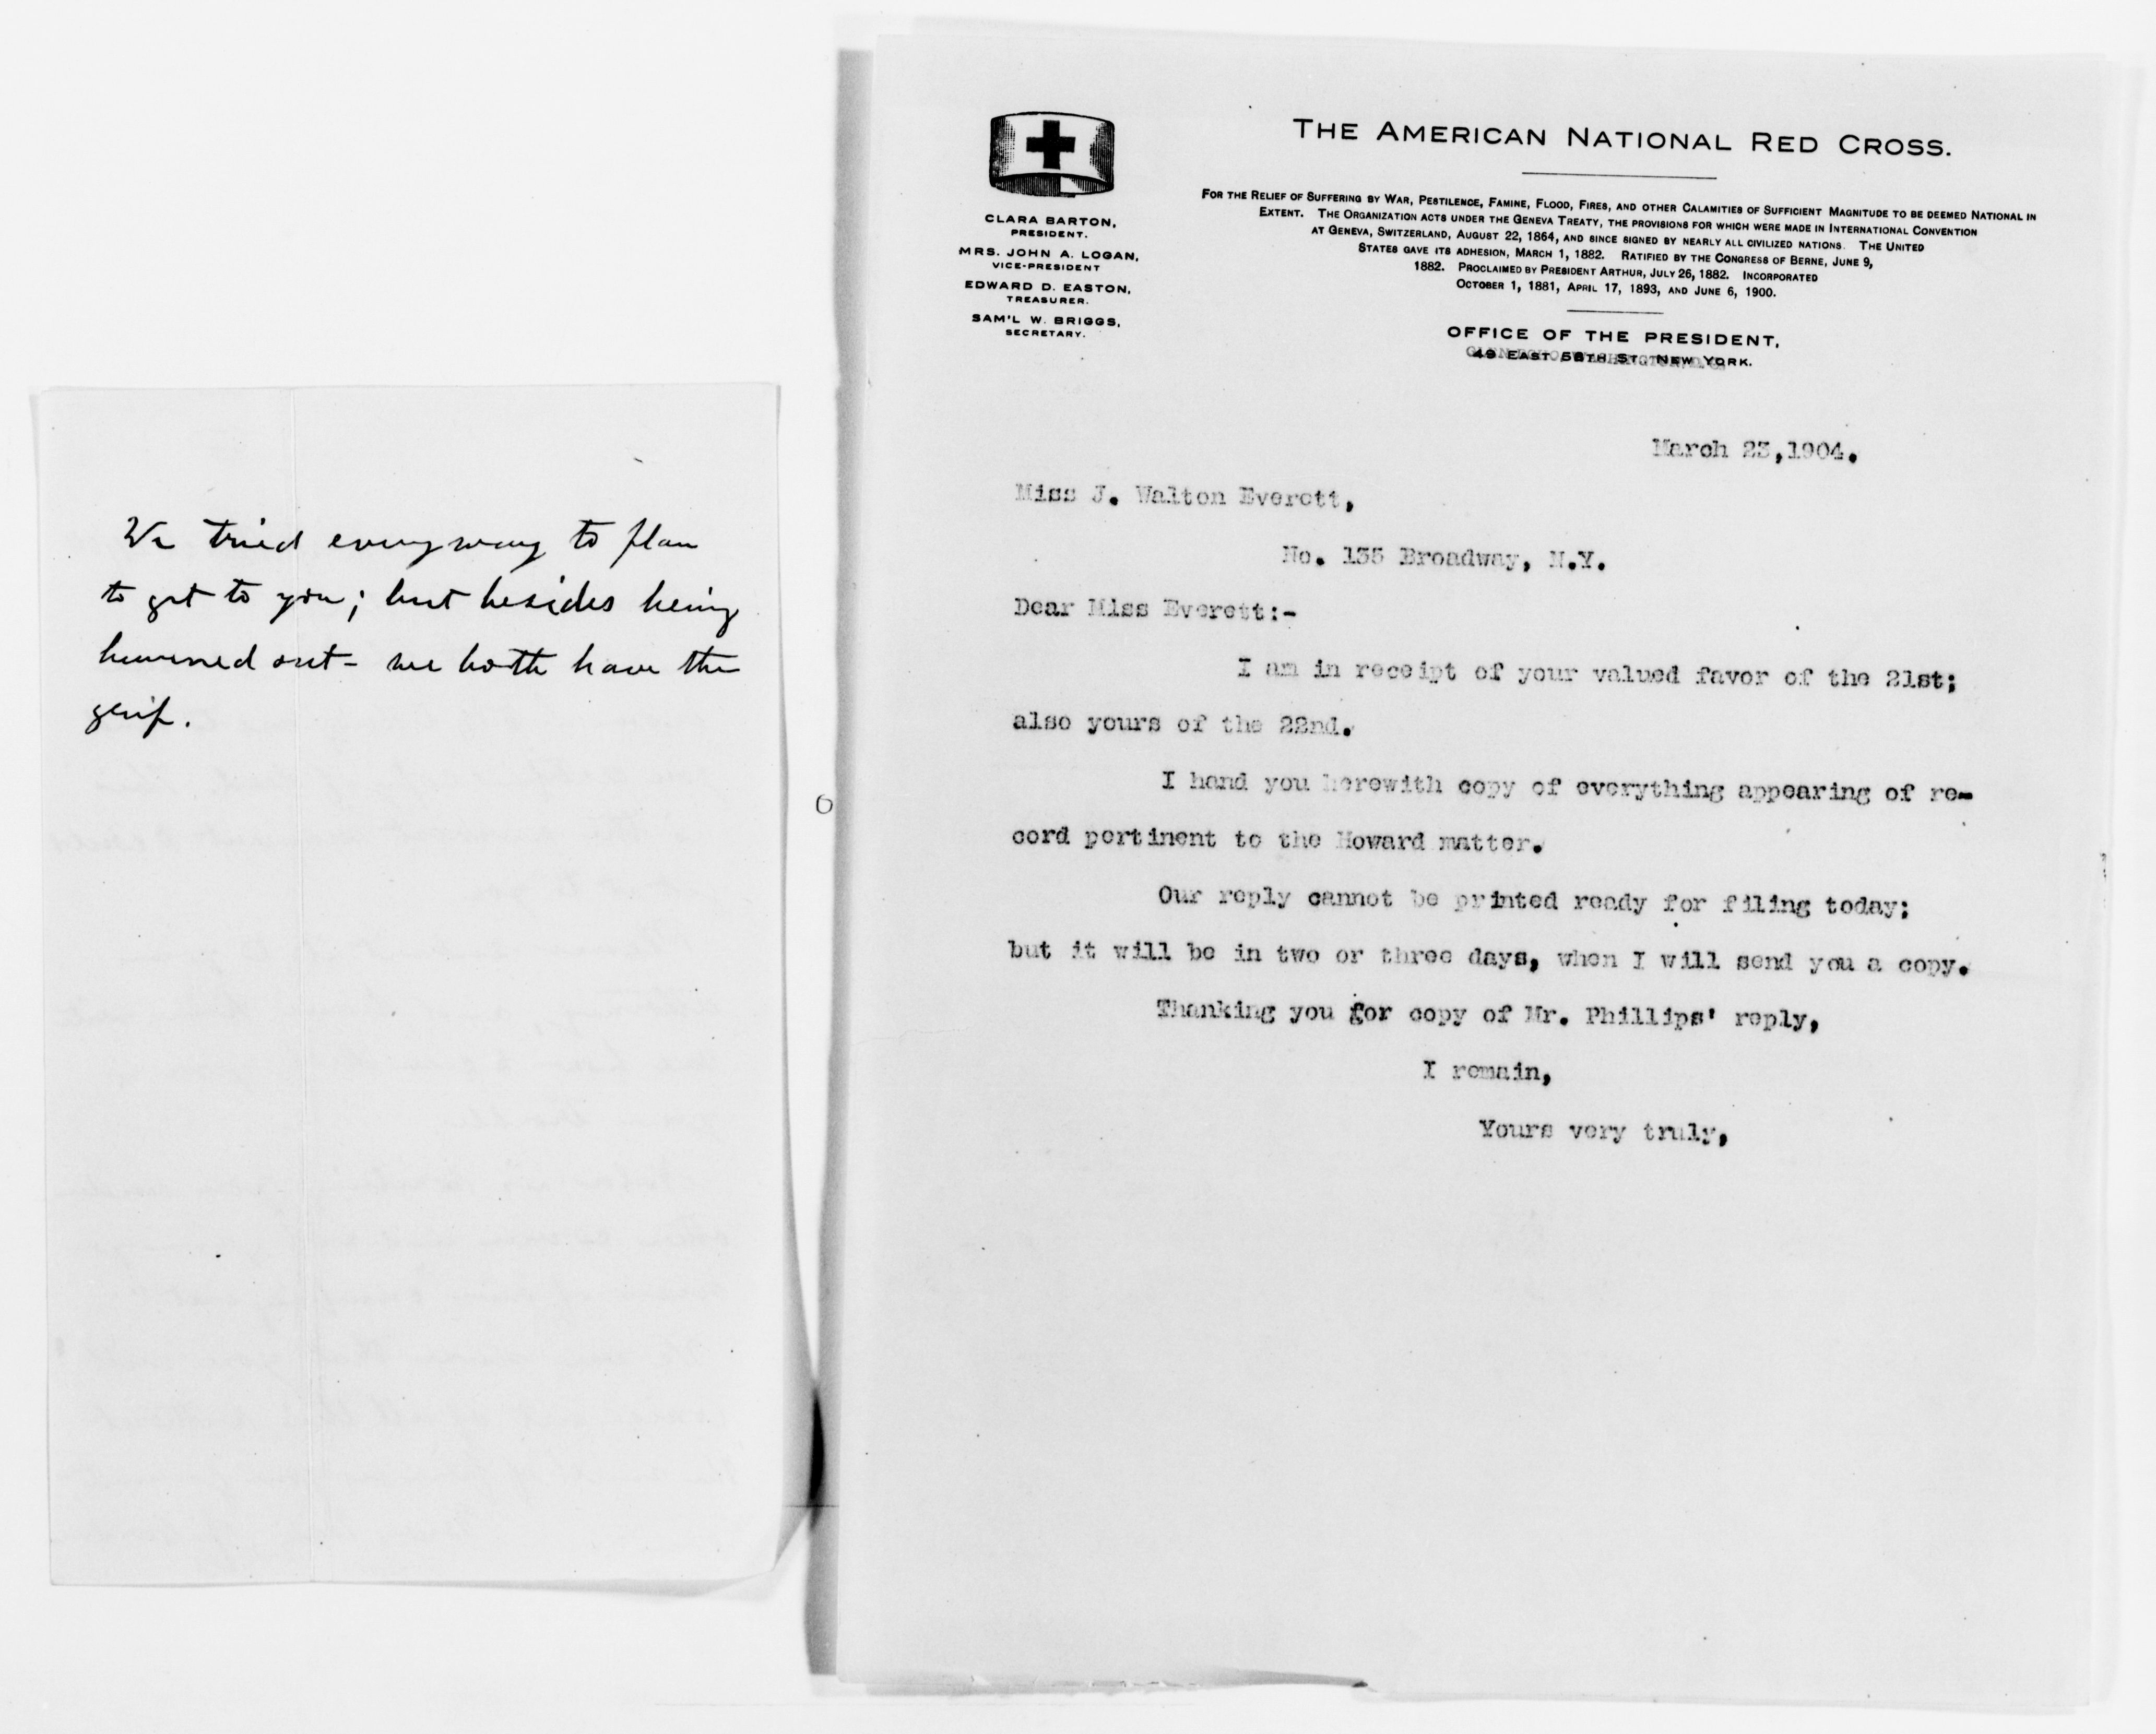 We tried everyway to plan
to get to you; but besides being
burned out – we both have the
grip.
THE AMERICAN NATIONAL RED CROSS.
CLARA BARTON,
PRESIDENT.
MRS. JOHN A. LOGAN,
VICE-PRESIDENT
EDWARD D. EASTON,
TREASURER.
SAM'L W. BRIGGS,
SECRETARY.
FOR THE RELIEF OF SUFFERING BY WAR, PESTILENCE, FAMINE, FLOOD, FIRES, AND OTHER CALAMITIES OF SUFFICIENT MAGNITUDE TO BE DEEMED NATIONAL IN
EXTENT. THE ORGANIZATION ACTS UNDER THE GENEVA TREATY, THE PROVISIONS FOR WHICH WERE MADE IN INTERNATIONAL CONVENTION
AT GENEVA, SWITZERLAND, AUGUST 22, 1864, AND SINCE SIGNED BY NEARLY ALL CIVILIZED NATIONS. THE UNITED
STATES GAVE ITS ADHESION, MARCH 1, 1882. RATIFIED BY THE CONGRESS OF BERNE, JUNE 9,
1882. PROCLAIMED BY PRESIDENT ARTHUR, JULY 26, 1882. INCORPORATED
OCTOBER 1, 1881, APRIL 17, 1893, AND JUNE 6, 1900.
OFFICE OF THE PRESIDENT,
49 EAST 58TH ST. NEW YORK.
March 23,1904.
Miss J. Walton Everett,
No. 135 Broadway, N.Y.
Dear Miss Everett:-
I am in receipt of your valued favor of the 21st;
also yours of the 22nd.
I hand you herewith copy of everything appearing of re-
cord pertinent to the Howard matter.
Our reply cannot be printed ready for filing today;
but it will be in two or three days, when I will send you a copy.
Thanking you for copy of Mr. Phillips' reply,
I remain,
Yours very truly,